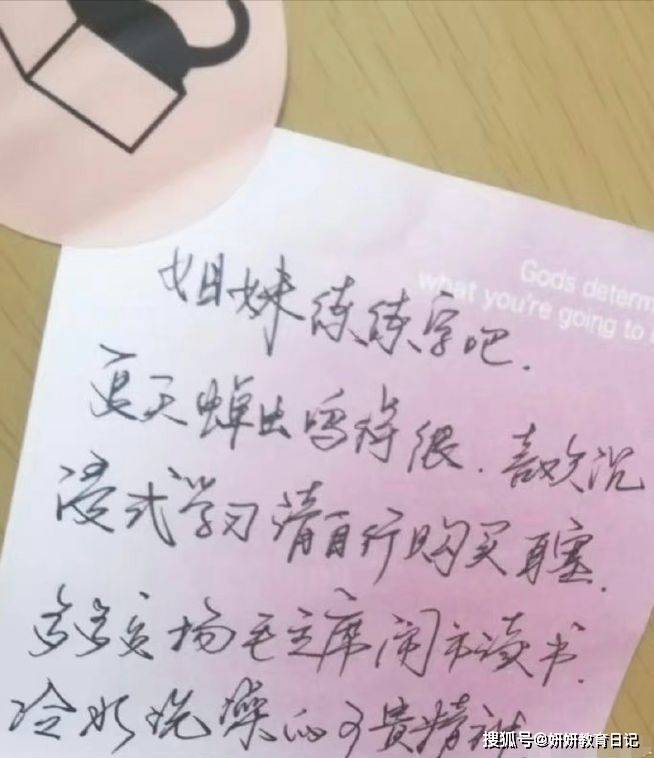 Gods determ
what you're going to
姐妹练练字吧.
夏天蝉鸣得很.喜欢沉
浸式学习请自行购买耳塞.
多多发扬毛主席闹市读书.
冷水洗澡的可贵精神.
搜狐号@妍妍教育日记